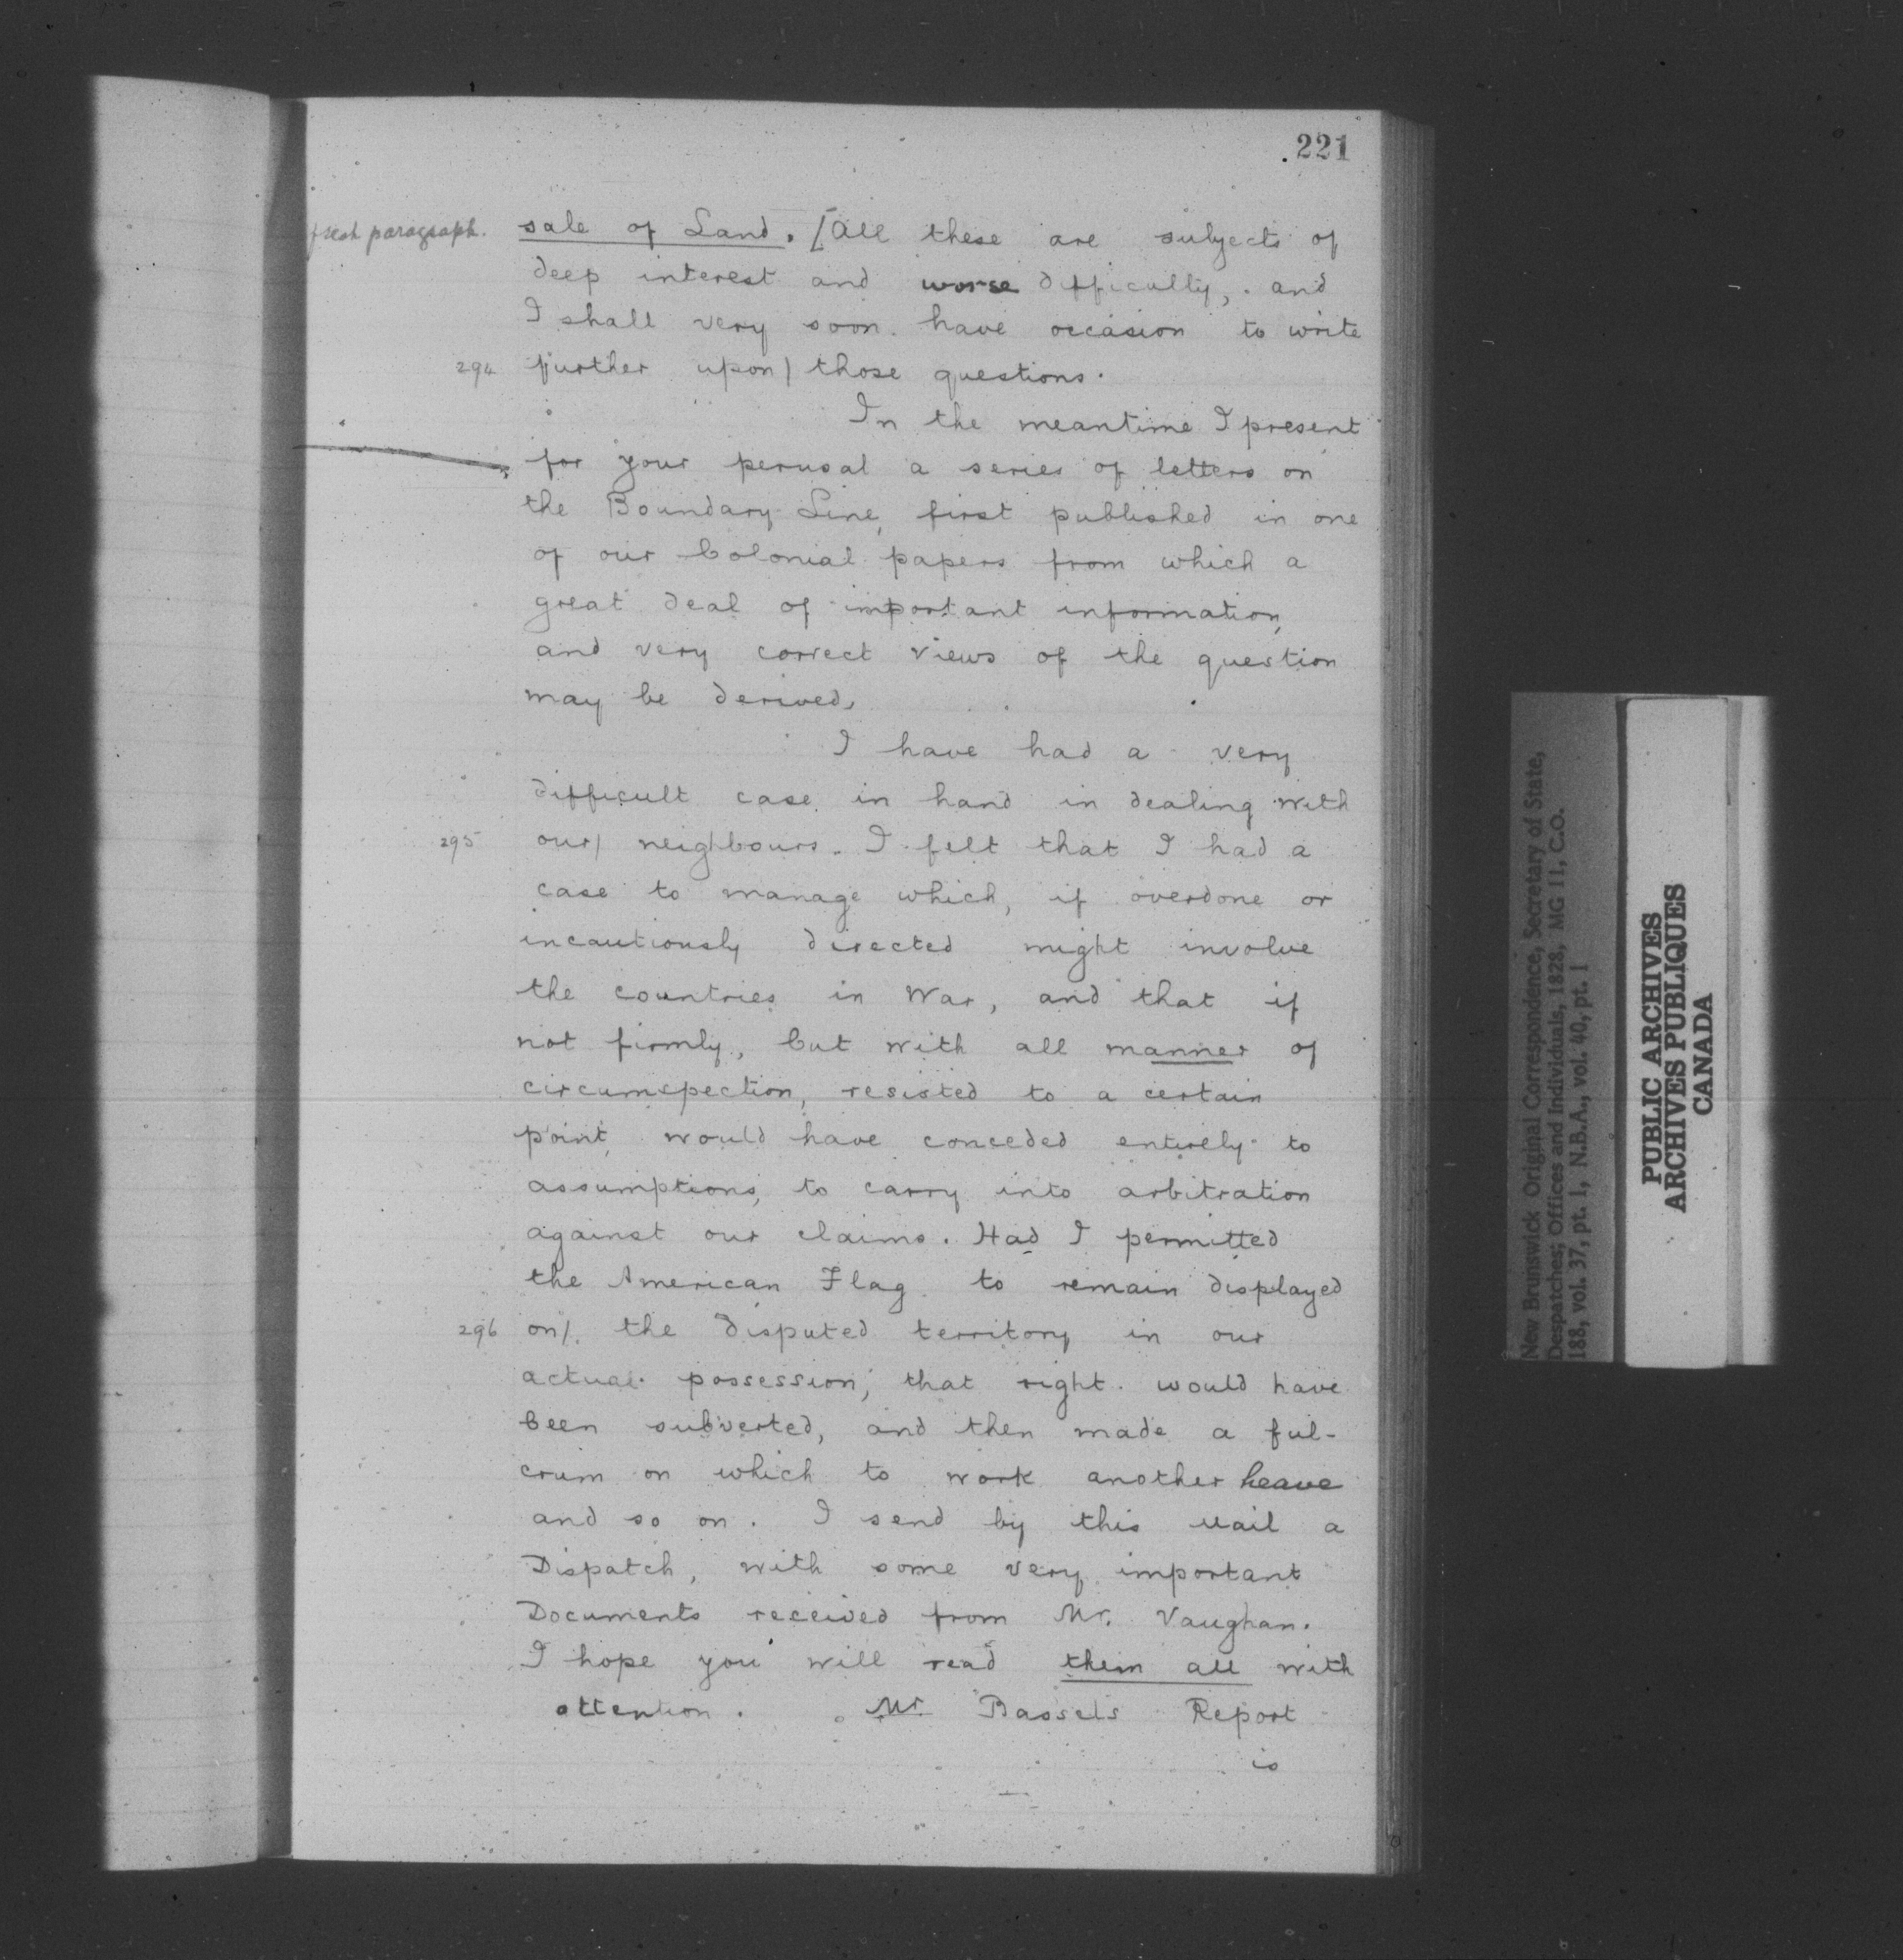 221
fresh paragraph.
sale of Land. [All these are subjects of
deep interest and worse difficulty, and
I shall very soon have occasion to write
294 further upon/ those questions.
In the meantime I present
for your perusal a series of letters on
the Boundary Line, first published in one
of our Colonial papers from which a
great deal of important information,
and very correct views of the question
may be derived,
I have had a very
difficult case in hand in dealing with
295 our/ neighbours. I felt that I had a
case to manage which, if overdone or
incautiously directed might involve
the countries in War, and that if
not firmly, but with all manner of
circumspection, resisted to a certain
point, would have conceded entirely to
assumptions, to carry into arbitration
against our claims. Had I permitted
the American Flag to remain displayed
296 on/ the disputed territory in our
actual possession, that right would have
been subverted, and then made a ful-
crum on which to work another heave
and so on. I send by this Mail a
Dispatch, with some very important
Documents received from Mr. Vaughan.
I hope you will read them all with
attention. Mr Bassets Report
is
New Brunswick Original Correspondence, Secretary of State,
Despatches; Offices and Individuals, 1828, MG 11, C.O.
188, vol. 37, pt. 1, N.B.A., vol. 40, pt. 1
PUBLIC ARCHIVES
ARCHIVES PUBLIQUES
CANADA